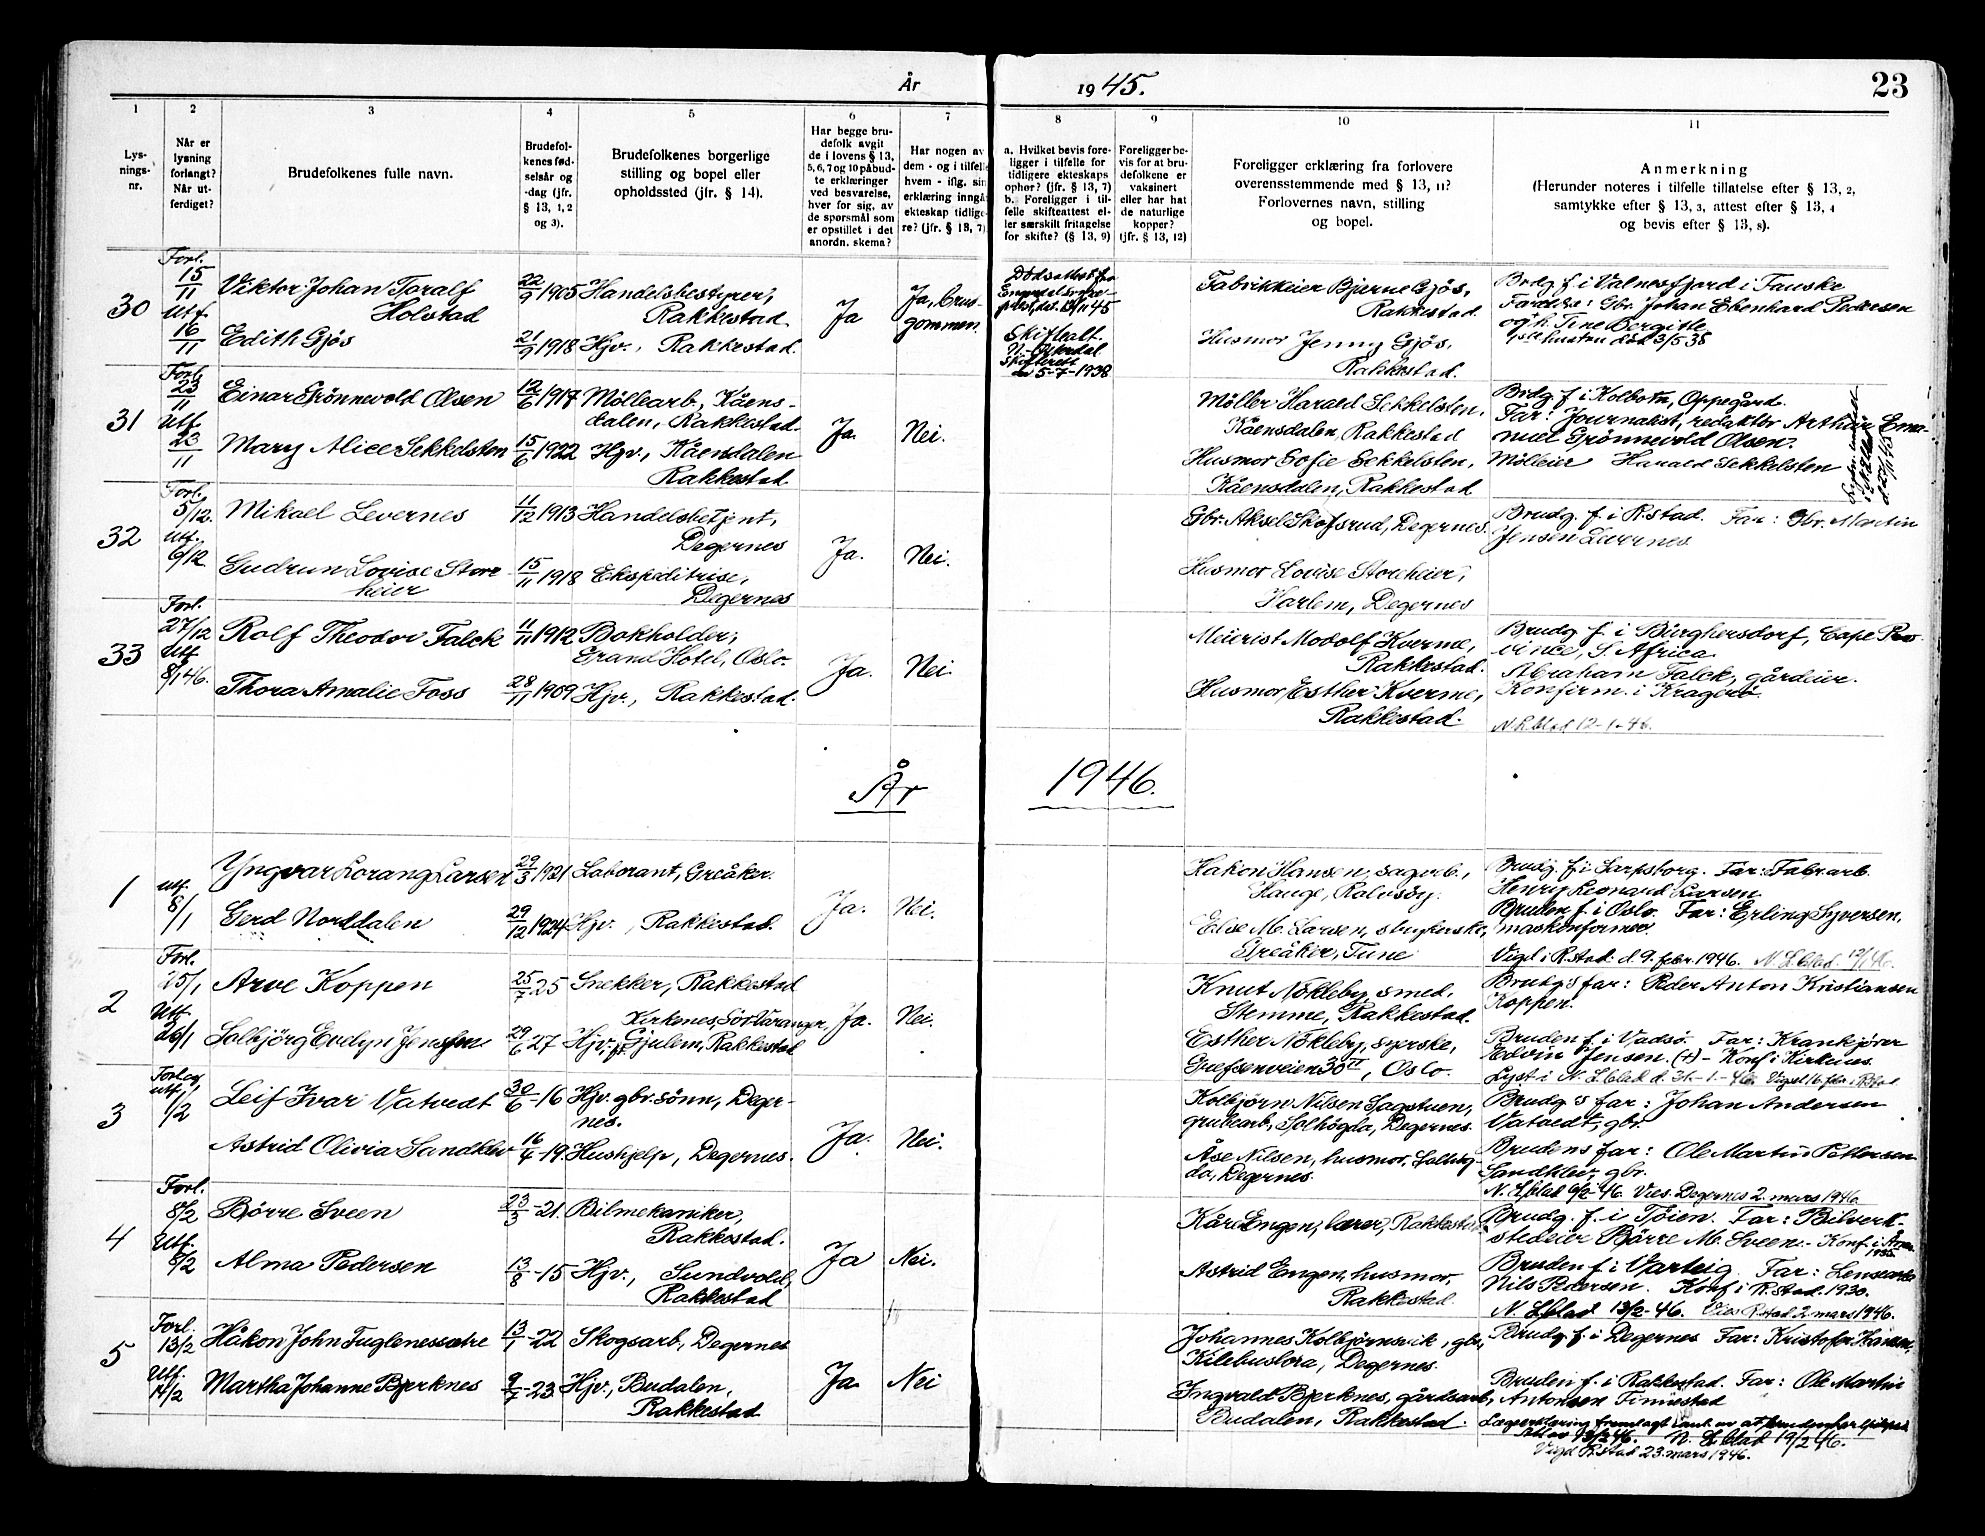 År 1945. 23
1 2 3 4 5 6 7 8 9 10 11
Lys-
nings-
nr.
Når er
lysning
forlangt?
Når ut-
ferdiget?
Brudefolkenes fulle navn.
Brudefol-
kenes fød-
selsår og
-dag (jfr.
§ 13, 1, 2
og 3).
Brudefolkenes borgerlige
stilling og bopel eller
opholdssted (jfr. § 14).
Har begge bru-
defolk avgit
de i lovens § 13,
5, 6, 7 og 10 påbud-
te erklæringer
ved besvarelse,
hver for sig, av
de spørsmål som
er opstillet i det
anordn. skema?
Har nogen av
dem - og i tilfelle
hvem - iflg. sin
erklæring inngå
ekteskap tidlige-
re? (jfr. § 13, 7)
a. Hvilket bevis fore-
ligger i tilfelle for
tidligere ekteskaps
ophør? (jfr. § 13, 7)
b. Foreligger i til-
felle skifteattest el-
ler særskilt fritagelse
for skifte? (§ 13, 9)
Foreligger be-
vis for at bru-
defolkene er
vaksinert
eller har hat
de naturlige
kopper?
(jfr. § 13, 12)
Foreligger erklæring fra forlovere
overensstemmende med § 13, 11?
Forlovernes navn, stilling
og bopel.
Anmerkning
(Herunder noteres i tilfelle tillatelse efter § 13, 2,
samtykke efter § 13, 3, attest efter § 13, 4
og bevis efter § 13, 8).
30
Forl.
15/11
Utf.
16/11
Viktor Johan Toralf
Holstad
Edith Gjøs
22/9 1905
21/9 1918
Handelsbestyrer,
Rakkestad
Hjv., Rakkestad.
Ja
Ja, brud-
gommen.
Dødsattest fra
Skifteatt.
5-7-1938
Fabrikkeier Bjerne Gjøs,
Rakkestad
Husmor Jenny Gjøs,
Rakkestad.
Brdg f. i Valnesfjord i Fauske
Foreldre: Gbr. Johan Ebenhard Pedersen
og h. Tine Bergitte
hustru død 3/5 38
31
Forl.
23/11
Utf
23/11
Einar Grönnevold Olsen
Mary Alice Sekkelsten
12/6 1917
15/6 1922
Möllearb., Kåens-
dalen, Rakkestad.
Hjv., Kåensdalen
Rakkestad
Ja.
Nei.
Möller Harald Sekkelsten,
Kåensdalen, Rakkestad
Husmor Sofie Sekkelsten,
Kåensdalen, Rakkestad
Brdg f. i Kolbotn, Oppegård.
Far: Journalist, redaktör Arthur Ema-
nuel Grönnevold Olsen.
Mölleier Harald Sekkelsten
32
Forl.
5/12.
Utf.
6/12
Mikael Levernes
Gudrun Lovise Stor-
heier
11/12 1913
15/11 1918
Handelsbetjent,
Degernes
Ekspeditrise,
Degernes
Ja.
Nei.
Gbr. Aksel Skofsrud, Degernes.
Husmor Lovise Storeheier,
Harlem, Degernes
Brudg. f. i R.stad. Far: Gbr. Martin
Jensen Levernes
33
Forl.
27/12
Utf
8/1 46.
Rolf Theodor Falck
Thora Amalie Foss
11/11 1912
28/11 1909
Bokholder,
Grand Hotel, Oslo.
Hjv., Rakkestad.
Ja.
Nei.
Meierist Modolf Kverme,
Rakkestad.
Husmor Esther Kverme,
Rakkestad.
Brudg f. i Burghersdorf, Cape Pro
vince, S. Africa
Abraham Falck, gårdeier.
Konfirm. i Kragerö
N. L.blad 12-1-46.
År 1946.
1
Utf.
8/1
Yngvar Lorang Larsen
Gerd Norddalen
29/3 1921
29/12 1924
Laborant, Greåker.
Hjv., Rakkestad.
Ja.
Nei.
Hakon Hansen, sagarb.,
Hauge, Rolvsöy.
Else M. Larsen, strykerske,
Greåker, Tune
Brudg. f. i Sarpsborg. Far: Fabr.arb.
Henry Leonard Larsen
Bruden f. i Oslo. Far: Erling Syversen,
maskinformer
Vigd i R.stad d. 9. febr. 1946. N. L.blad 12/1 46.
2
Forl.
25/1
Utf
26/1
Arve Koppen
Solbjörg Evelyn Jenssen
25/7-25
29/6-27
Snekker, Rakkestad
Kirkenes, Sör-Varanger,
Hjv., Gjulem, Rakkestad
Ja.
Nei.
Knut Nökleby, smed,
Stemme, Rakkestad.
Esther Nökleby, syerske,
Grefsenveien 30 II, Oslo.
Brudg's far: Peder Anton Kristiansen
Koppen.
Bruden f. i Vadsö. Far: Krankjörer
Edvin Jensen. (+) - Konf i Kirkenes
Lyst i N. L.blad d. 31-1-46. Vigsel 16. febr. i R.stad
3
Forl. og
utf.
1/2
Leif Ivar Vatvedt
Astrid Olivia Sandklev
30/6-16
16/4-19.
Hjv. gbr.sönn, Deger-
nes.
Hushjelp, Degernes.
Ja.
Nei.
Kolbjörn Nilsen Sagstuen,
grubearb., Solhögda, Degernes.
Åse Nilsen, husmor, Solhög-
da, Degernes.
Brudg's far: Johan Andersen
Vatvedt, gbr.
Brudens far: Ole Martin Pettersen
Sandklev, gbr.
N. L.blad 6/2-46. Vies. Degernes 2. mars 1946.
4
Forl.
8/2
Utf.
8/2
Börre Sveen
Alma Pedersen
23/3-21.
13/8-15
Bilmekaniker,
Rakkestad.
Hjv., Sundvold,
Rakkestad
Ja
Nei.
Kåre Engen, lærer, Rakkestad
Astrid Engen, husmor,
Rakkestad.
Brudg. f. i Töien. Far: Bilverk-
stedeier Börre M. Sveen. - Konf. i
Bruden f. i Varteig. Far:
Nils Pedersen. Konf i R.stad. 1930.
N. L.blad 13/2-46. Vies R.stad 2. mars 1946.
5
Forl.
13/2
Utf.
14/2
Håkon John Fuglenessætre
Martha Johanne Bjerknes
13/1-22
9/7-23
Skogsarb, Degernes
Hjv., Budalen,
Rakkestad
Ja
Nei
Johannes Kolbjörnsvik, gbr.,
Kilebuslora, Degernes.
Ingvald Bjerknes, gårdsarb,
Budalen, Rakkestad.
Brudg f. i Degernes Far: Kristofer Hansen,
Bruden f. i Rakkestad. Far: Ole Martin
Antonsen Finnestad
Lægeerklæring fremlagt
13/2 46. N. L.blad 19/2 46.
Vigd R.stad 23. mars 1946.